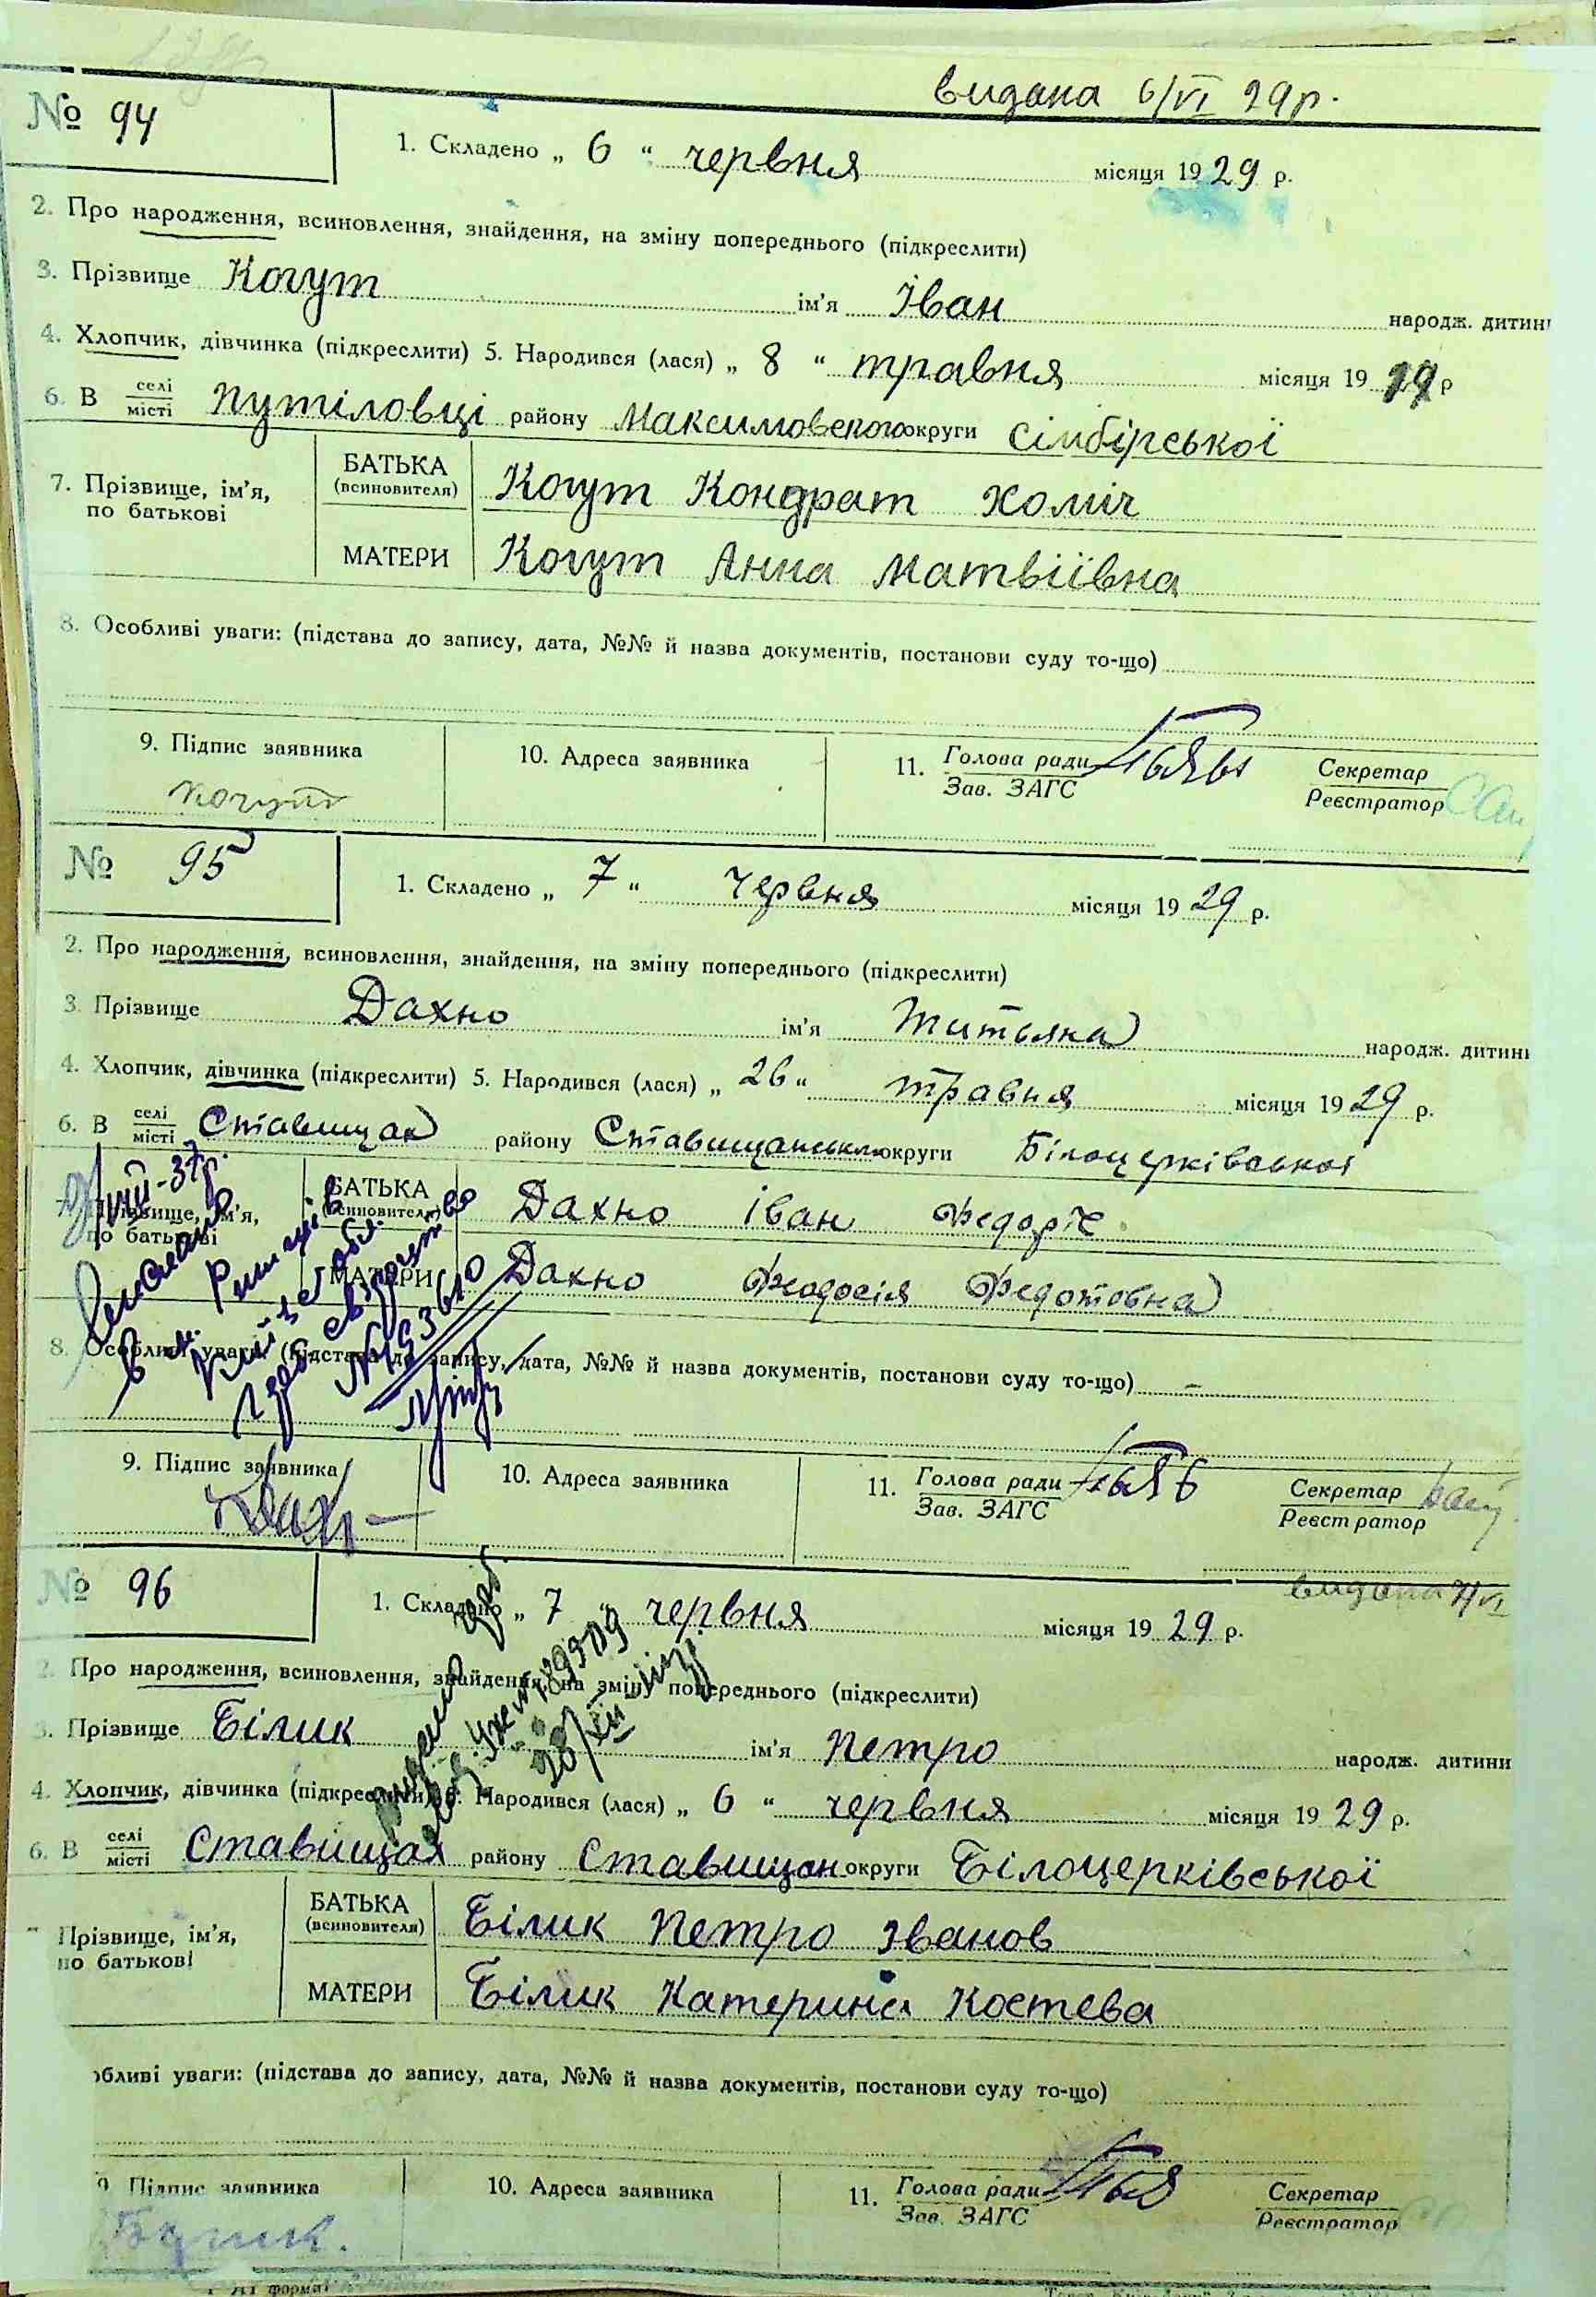 видана 6/VI 29 р.
№ 94
1. Складено „ 6 “ червня місяця 1929 р.
2. Про народження, всиновлення, знайдення, на зміну попереднього (підкреслити)
3. Прізвище Когут ім'я Іван народж. дитини
4. Хлопчик, дівчинка (підкреслити) 5. Народився (лася) „ 8 “ травня місяця 19 р
6. В селі місті Путіловці району Максимовского округи Сімбірської
7. Прізвище, ім'я, по батькові
БАТЬКА (всиновителя) Когут Кондрат Хоміч
МАТЕРИ Когут Анна Матвіївна
8. Особливі уваги: (підстава до запису, дата, №№ й назва документів, постанови суду то-що)
9. Підпис заявника 10. Адреса заявника 11. Голова ради Зав. ЗАГС Секретар Реєстратор
Когут
№ 95
1. Складено „ 7 “ червня місяця 1929 р.
2. Про народження, всиновлення, знайдення, на зміну попереднього (підкреслити)
3. Прізвище Дахно ім'я Титьяна народж. дитини
4. Хлопчик, дівчинка (підкреслити) 5. Народився (лася) „ 26 “ травня місяця 1929 р.
6. В селі місті Ставищах району Ставищанськ округи Білоцерківської
7. Прізвище, ім'я, по батькові
БАТЬКА (всиновителя) Дахно Іван Федорч
МАТЕРИ Дахно Феодосія Федотовна
8. Особливі уваги: (підстава до запису, дата, №№ й назва документів, постанови суду то-що) –
9. Підпис заявника 10. Адреса заявника 11. Голова ради Зав. ЗАГС Секретар Реєстратор
видана 7/VI
№ 96
1. Складено „ 7 “ червня місяця 1929 р.
2. Про народження, всиновлення, знайдення, на зміну попереднього (підкреслити)
3. Прізвище Білик ім'я Петро народж. дитини
4. Хлопчик, дівчинка (підкреслити) 5. Народився (лася) „ 6 “ червня місяця 1929 р.
6. В селі місті Ставищах району Ставищан округи Білоцерківської
Прізвище, ім'я, по батькові
БАТЬКА (всиновителя) Білик Петро Іванов
МАТЕРИ Білик Катерина Костева
обливі уваги: (підстава до запису, дата, №№ й назва документів, постанови суду то-що)
9. Підпис заявника 10. Адреса заявника 11. Голова ради Зав. ЗАГС Секретар Реєстратор